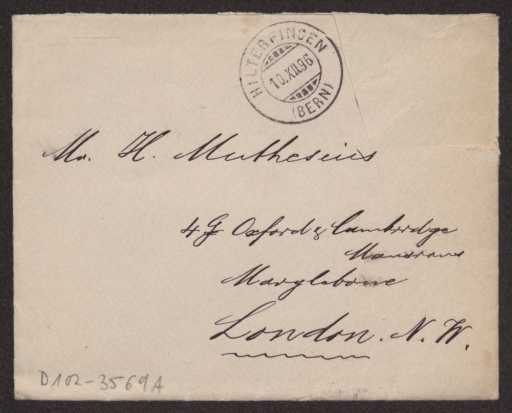 HILTERFINGEN
10.XII.96
(BERN)
Mr. H. Muthesius
4 G Oxford & Cambridge
Mansions
Marylebone
London. N. W.
D102-3569A